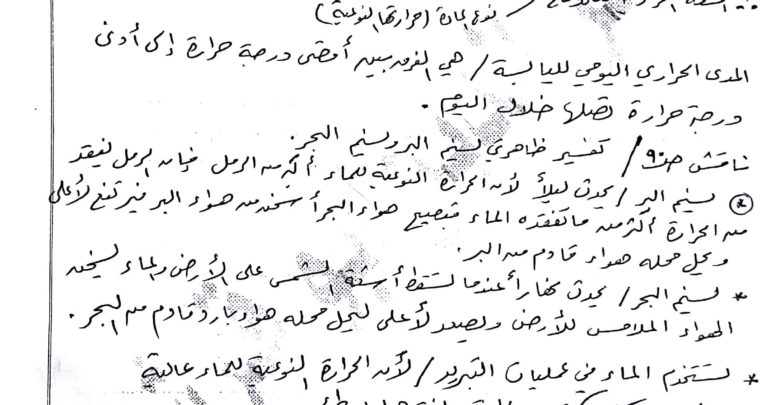 نوع المادة (حرارتها النوعية)
المدى الحراري اليومي لليابسة / هي الفرق بين أقصى درجة حرارة إلى أدنى
درجة حرارة تصلها خلال اليوم .
ناقش ص٩٠ / تفسير ظاهرتي نسيم البر ونسيم البحر.
* نسيم البر / يحدث ليلاً لأن الحرارة النوعية للماء أكبر من الرمل فإن الرمل يفقد
من الحرارة أكثر من ما تفقده الماء فيصبح هواء البحر أسخن من هواء البر فيرتفع لأعلى
ويحل محله هواء قادم من البر.
* نسيم البحر / يحدث نهاراً عندما تسقط أشعة الشمس على الأرض والماء ليسخن
الهواء الملامس للأرض ويصعد لأعلى ليحل محله هواء بارد قادم من البحر .
* تستخدم الماء في عمليات التبريد / لأن الحرارة النوعية للماء عالية